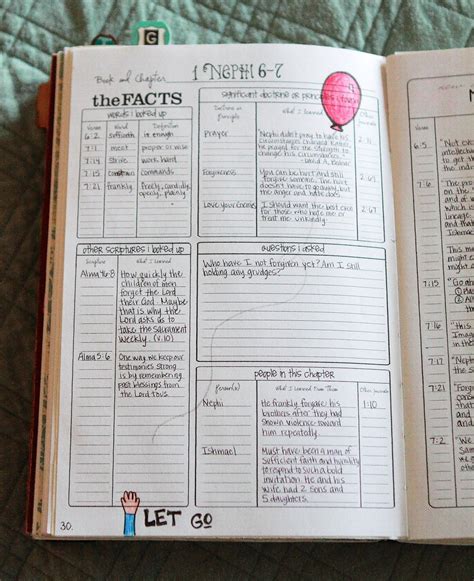 G
Book and Chapter
1 Nephi 6-7
the FACTS
words i looked up
Verse Word Definition
6:2 sufficeth is enough
7:1 meet proper or wise
7:14 Strive work hard
7:15 commands
7:21 frankly freely, candidly,
openly, plainly
significant doctrine or principles i found
Doctrine or Principle What I Learned
Prayer
Nephi didn't pray to have his
circumstances changed. Rather,
he prayed for the strength to
change his circumstances.
-David A. Bednar
Forgiveness
You can be hurt and still
forgive someone. The hurt
doesn't have to go away, but
the anger and hate does.
2:67
Love your enemies
I should want the best even
for those who hate me or
treat me unkindly.
2:67
other scriptures i looked up
Scripture What I Learned
Alma 46:8
How quickly the
children of men
forget the Lord
their God. Maybe
that is why the
Lord asks us to
take the Sacrament
weekly. (v.10)
Alma 5:6
One way we keep our
testimonies strong
is by remembering
past blessings from
the Lord
questions i asked
Who have I not forgiven yet? Am I still
holding any grudges?
people in this chapter
Person(s) What I Learned From Them
Nephi
He frankly forgave his
brothers after they had
shown violence toward
him repeatedly.
1:10
Ishmael
Must have been a man of
sufficient faith and humility
to respond to such a bold
invitation. He and his
wife had 2 sons and
5 daughters.
30.
LET GO
6:5
7:1
7:15
7:21
7:2